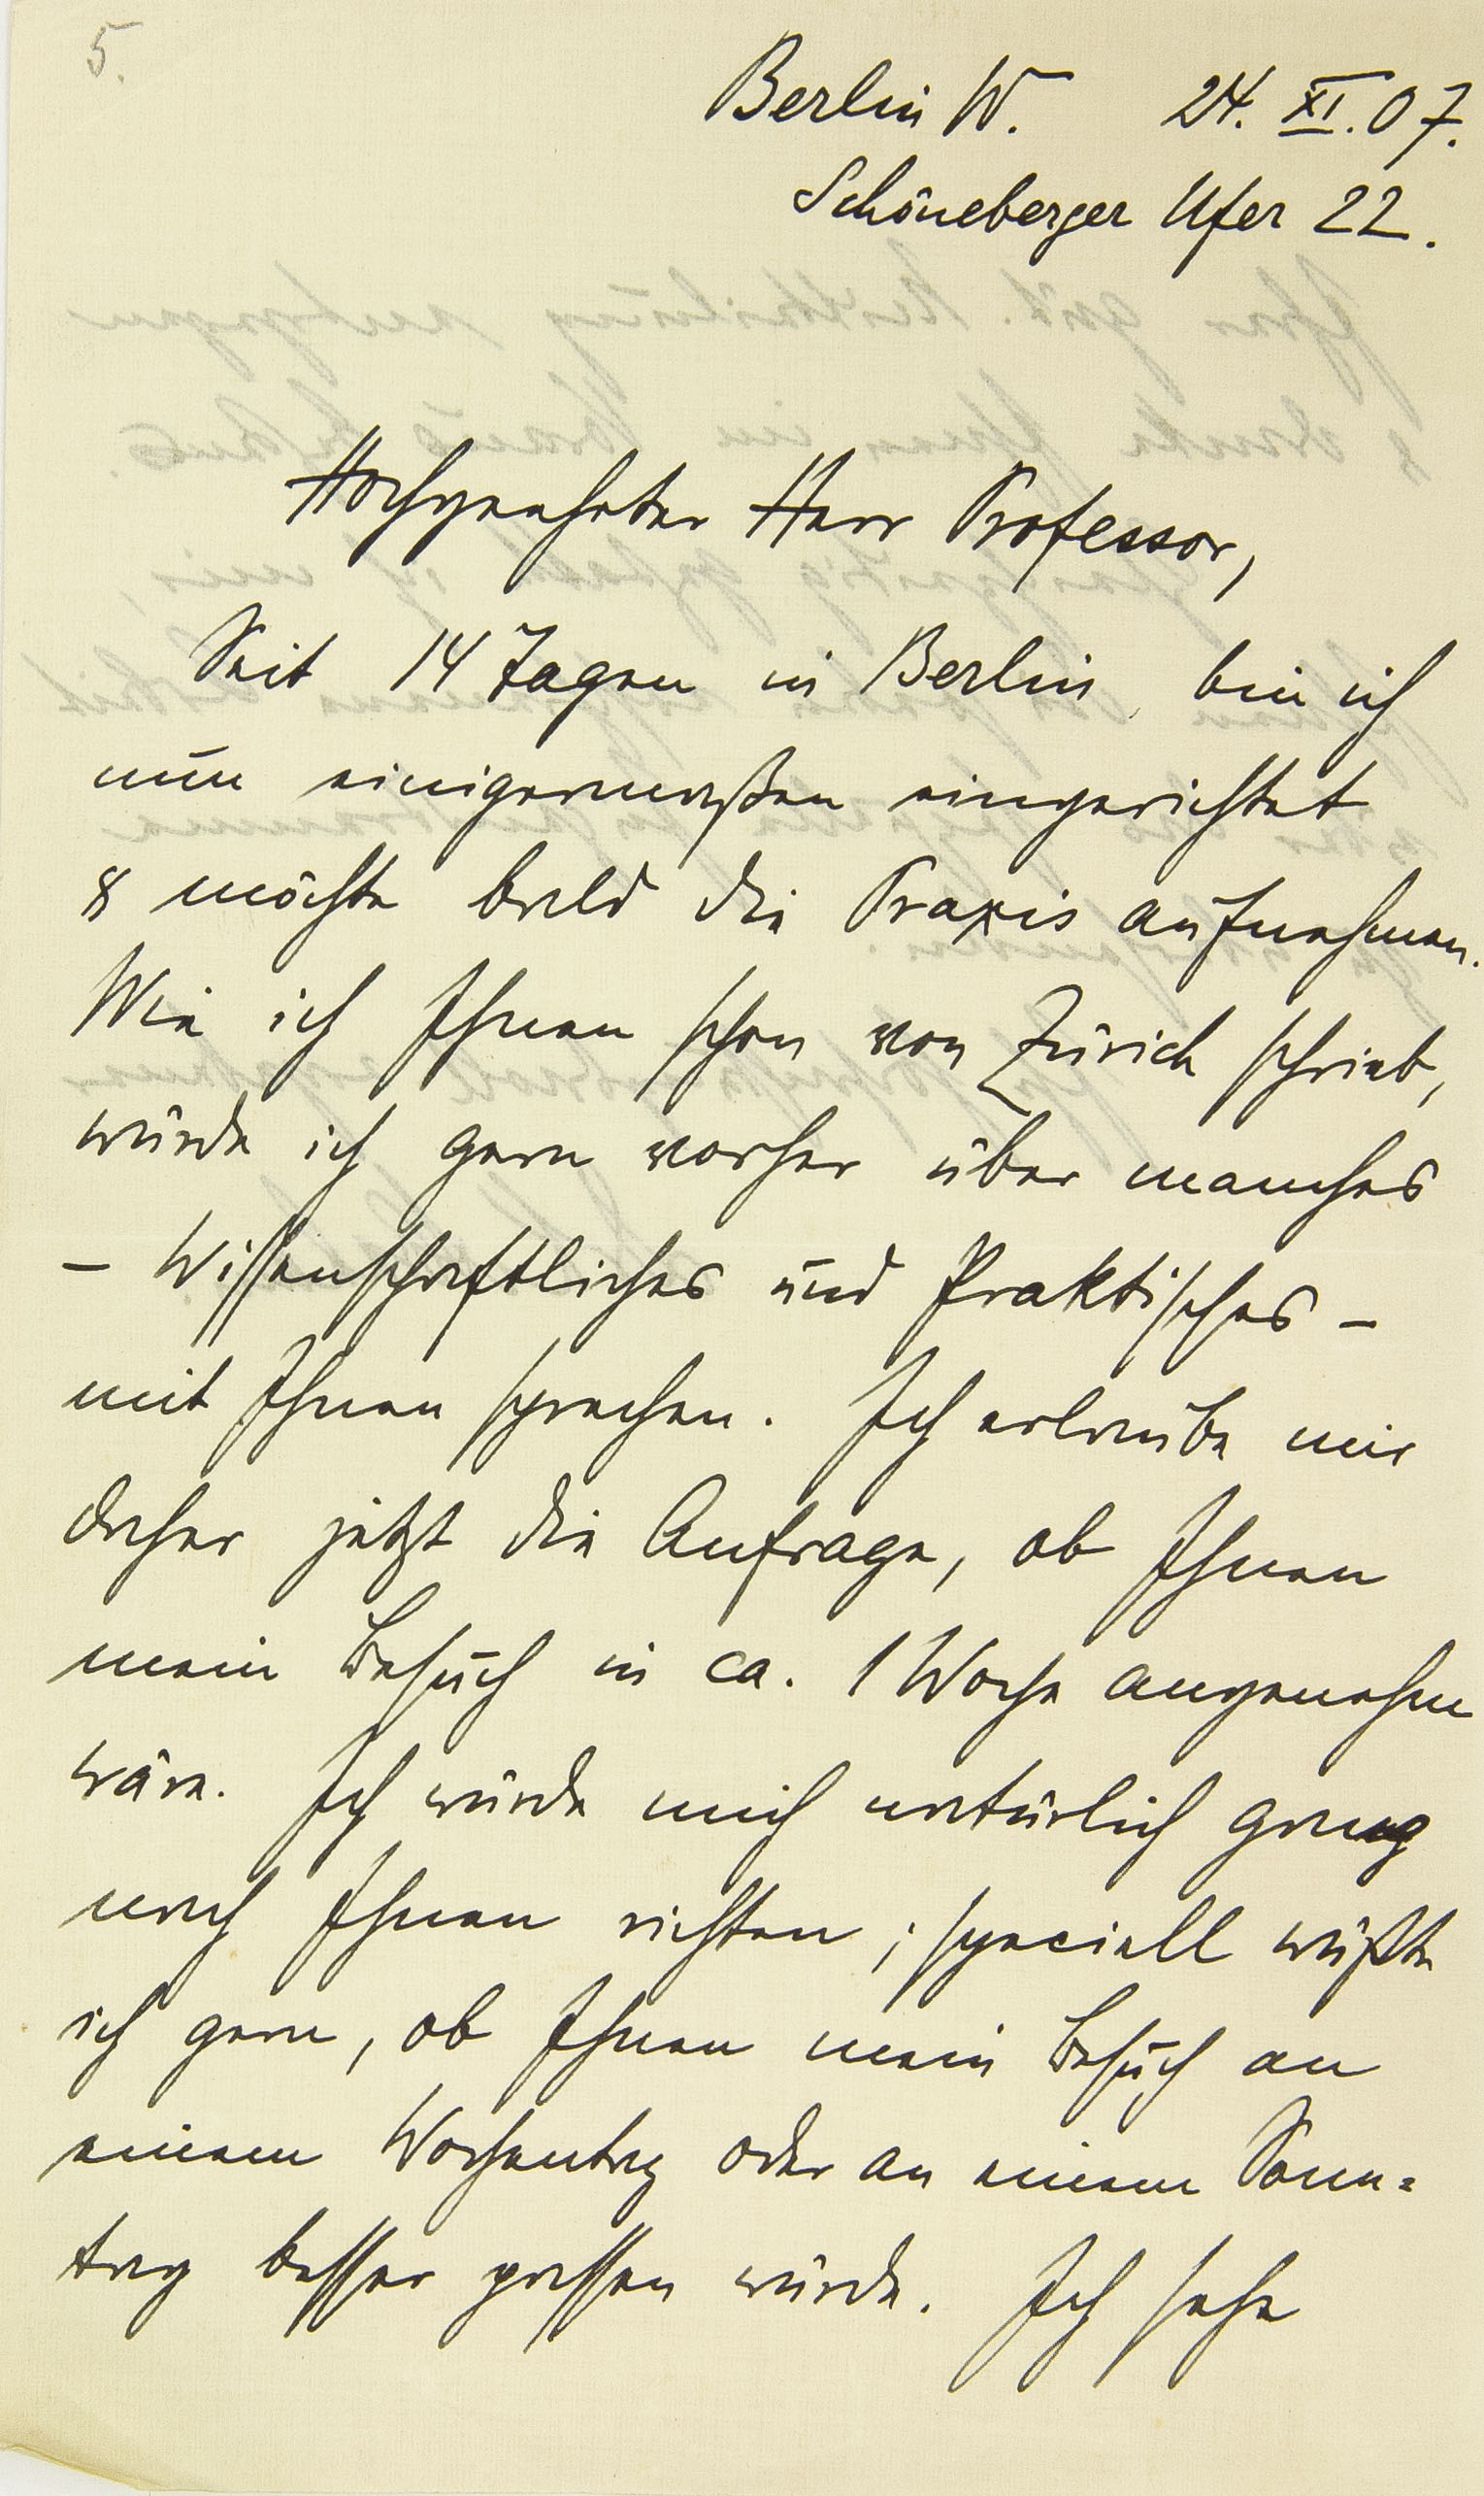 5.
Berlin W. 24. XI. 07.
Schöneberger Ufer 22.
Hochgeehrter Herr Professor,
Seit 14 Tagen in Berlin, bin ich
nun einigermaßen eingerichtet
& möchte bald die Praxis aufnehmen.
Wie ich Ihnen schon von Zürich schrieb,
würde ich gern vorher über manches
– Wissenschaftliches und Praktisches –
mit Ihnen sprechen. Ich erlaube mir
daher jetzt die Anfrage, ob Ihnen
mein Besuch in ca. 1 Woche angenehm
wäre. Ich würde mich natürlich ganz
nach Ihnen richten; speciell wüßte
ich gern, ob Ihnen mein Besuch an
einem Wochentag oder an einem Sonn=
tag besser passen würde. Ich sehe